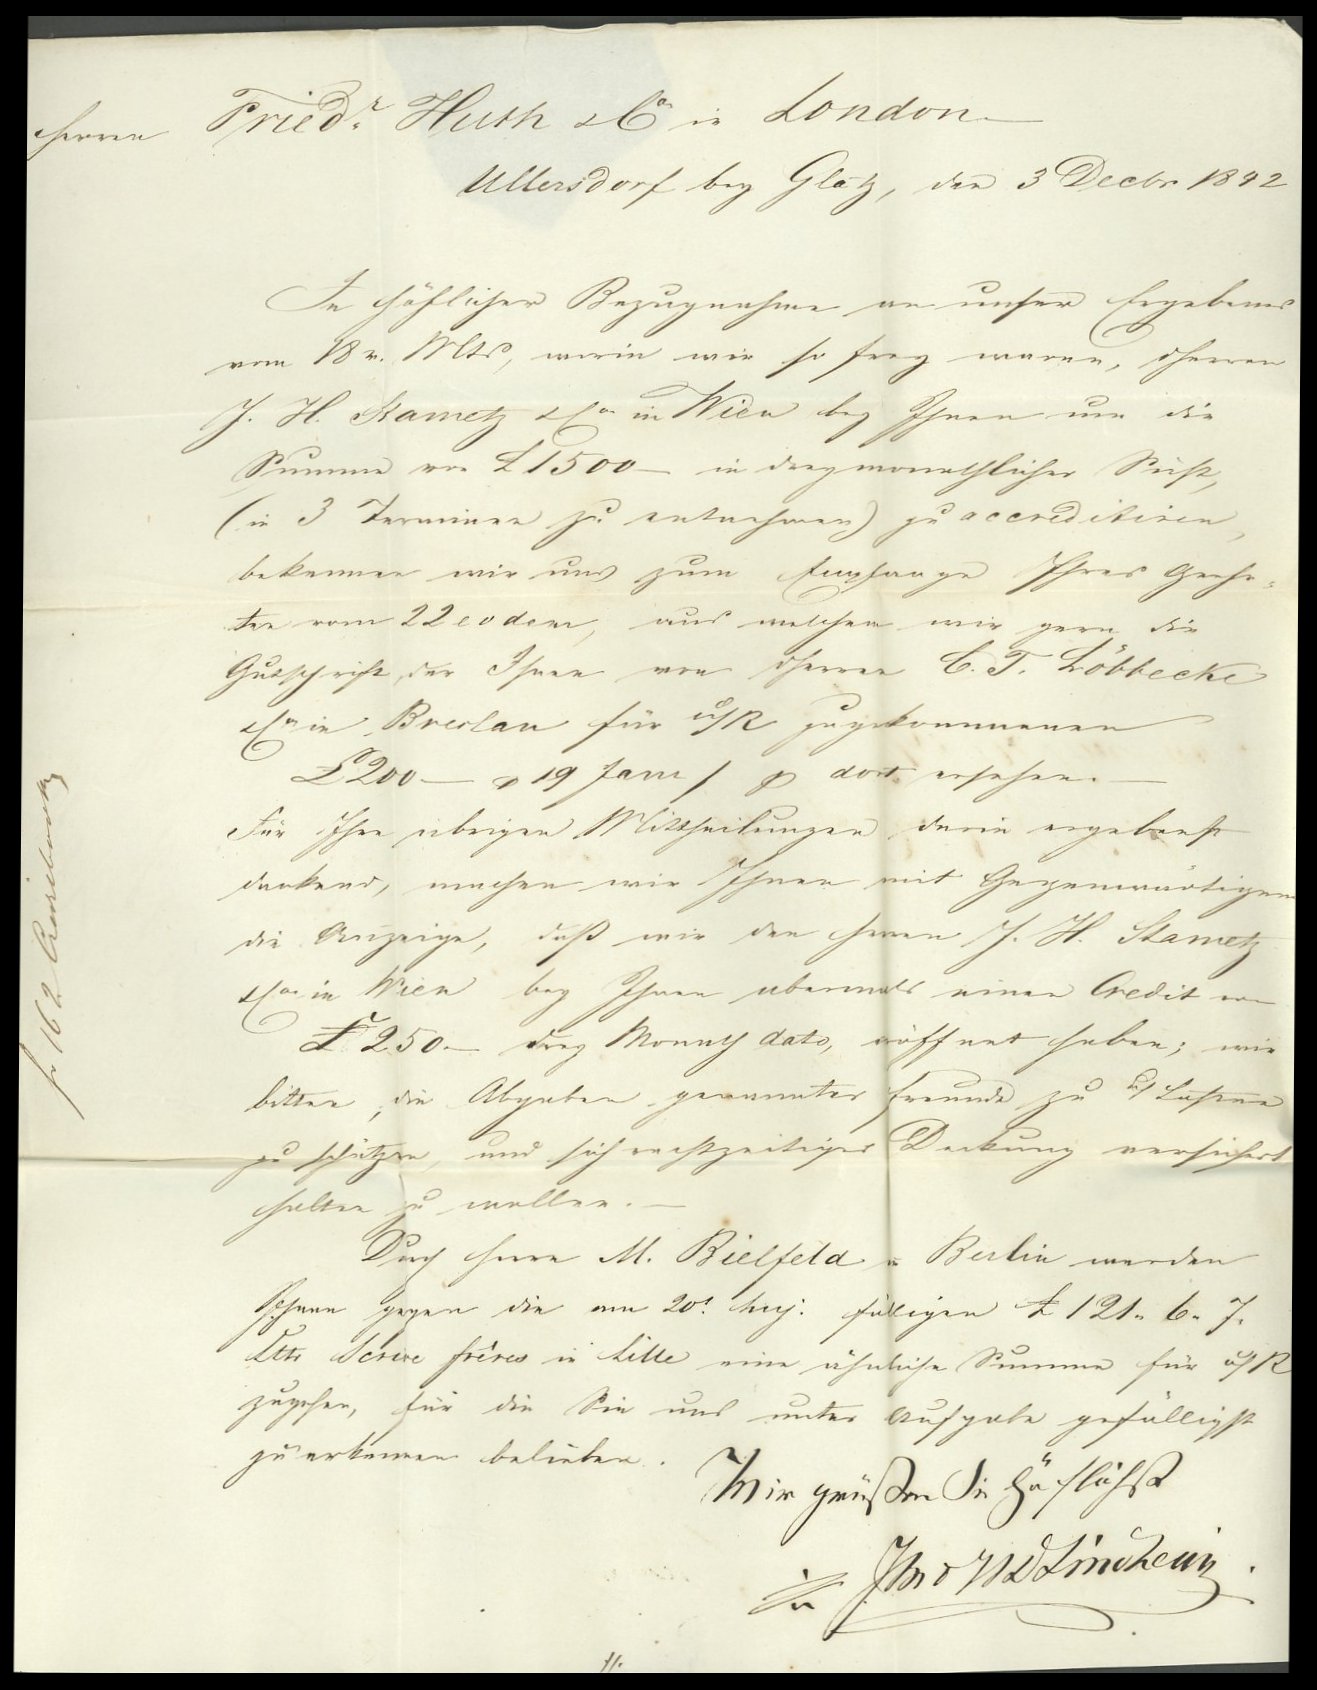 Herren Friedr. Huth & Co in London
Ullersdorf bey Glatz, den 3 Decbr 1842
In höflicher Bezugnahme an unser Ergebenes
vom 18 v. Mts, worin wir so frey waren, Herren
J. H. Stametz & Co in Wien bey Ihnen um die
Summe von £ 1500 – in dreymonathlicher Sicht,
(in 3 Terminen zu entnehmen) zu accreditiren,
bekennen wir uns zum Empfange Ihres Geehr-
ten vom 22 eodem, aus welchem wir gern die
Gutschrift der Ihnen von Herren C. T. Löbbecke
& Co in Breslau für u/R zugekommenen
£ 200 – p 19 Janr / p dort ersehen. –
Für Ihre übrigen Mittheilungen darin ergebenst
dankend, machen wir Ihnen mit Gegenwärtigem
die Anzeige, daß wir den Herren J. H. Stametz
& Co in Wien bey Ihnen abermals einen Credit von
£ 250 – drey Monath dato, eröffnet haben; wir
bitten, die Abgaben genannter Freunde zu u/ Lasten
zu schützen, und sich rechtzeitiger Deckung versichert
halten zu wollen. –
Durch Herrn M. Bielfeld in Berlin werden
Ihnen gegen die am 20t. huj. fälligen £ 121. 6. 7.
Scrive frères in Lille eine ähnliche Summe für u/R
zugehen, für die Sie uns unter Aufgabe gefälligst
zu erkennen belieben.
Wir grüßen Sie höflichst
Lindheim